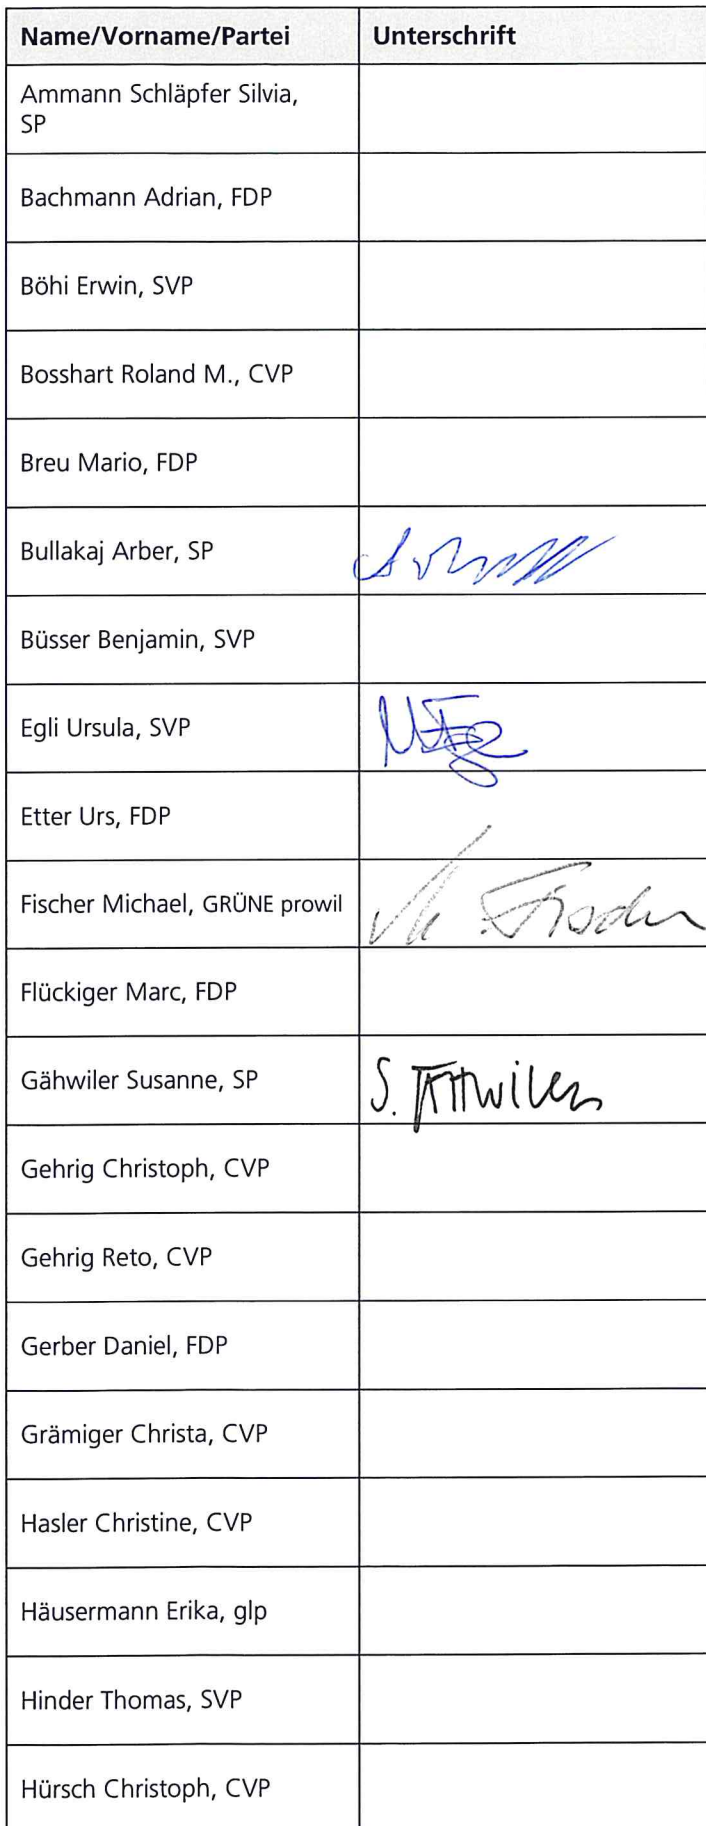 Name/Vorname/Partei Unterschrift
Ammann Schläpfer Silvia,
SP
Bachmann Adrian, FDP
Böhi Erwin, SVP
Bosshart Roland M., CVP
Breu Mario, FDP
Bullakaj Arber, SP
Büsser Benjamin, SVP
Egli Ursula, SVP
Etter Urs, FDP
Fischer Michael, GRÜNE prowil
Fischer
Flückiger Marc, FDP
Gähwiler Susanne, SP
S. Gähwiler
Gehrig Christoph, CVP
Gehrig Reto, CVP
Gerber Daniel, FDP
Grämiger Christa, CVP
Hasler Christine, CVP
Häusermann Erika, glp
Hinder Thomas, SVP
Hürsch Christoph, CVP